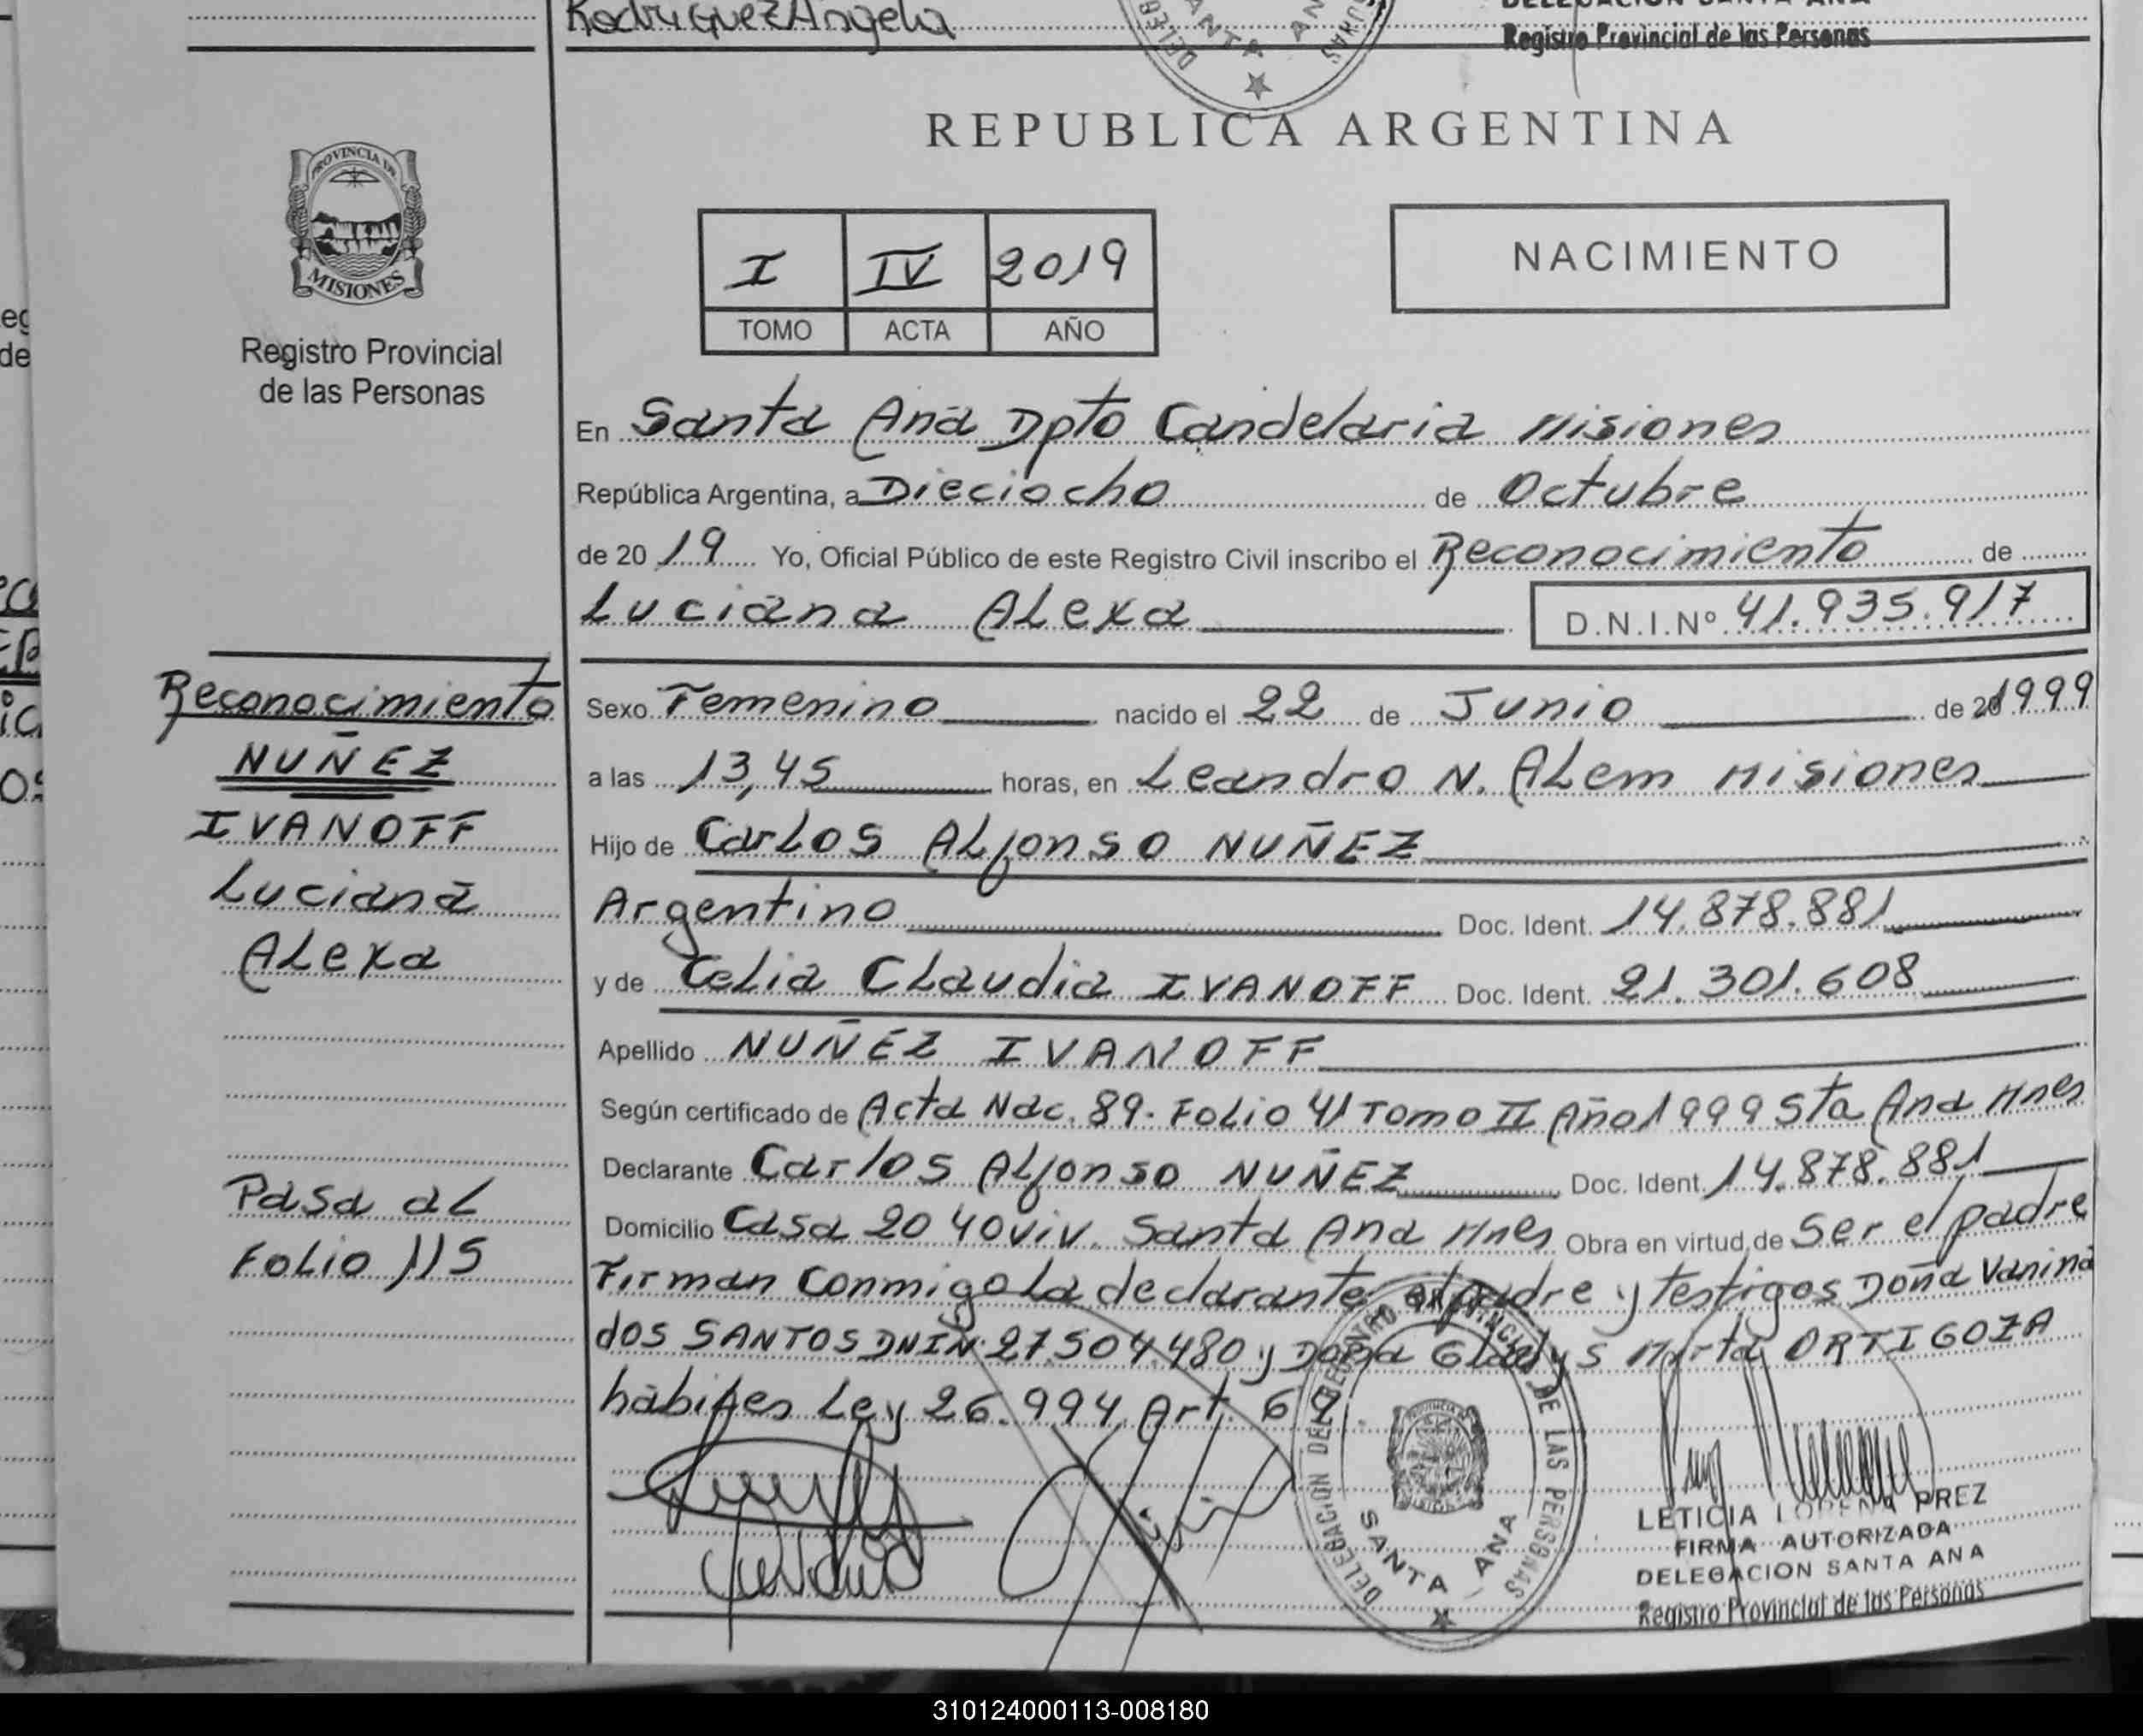 Rodriguez Angela
DELEGACION SANTA ANA
Registro Provincial de las Personas
SANTA ANA
REPUBLICA ARGENTINA
PROVINCIA DE
MISIONES
Registro Provincial
de las Personas
I IV 2019
TOMO ACTA AÑO
NACIMIENTO
En Santa Ana Dpto Candelaria Misiones
República Argentina, a Dieciocho de Octubre
de 20 19 Yo, Oficial Público de este Registro Civil inscribo el Reconocimiento de
Luciana Alexa D.N.I.Nº 41.935.917
Reconocimiento
NUÑEZ
IVANOFF
Luciana
Alexa
Pasa al
Folio 115
Sexo Femenino nacido el 22 de Junio de 20 1999
a las 13,45 horas, en Leandro N. Alem Misiones
Hijo de Carlos Alfonso NUÑEZ
Argentino Doc. Ident. 14.878.881
y de Celia Claudia IVANOFF Doc. Ident. 21.301.608
Apellido NUÑEZ IVANOFF
Según certificado de Acta Nac. 89. Folio 41 Tomo II Año 1999 Sta Ana Mnes
Declarante Carlos Alfonso NUÑEZ Doc. Ident. 14.878.881
Domicilio Casa 20 40 viv. Santa Ana Mnes Obra en virtud de Ser el padre
Firman Conmigo la declarante el padre y testigos Doña Vanina
dos SANTOS DNI Nº 27.504.480 y Doña Gladys Mirta ORTIGOZA
hábiles Ley 26.994 Art. 69.
DELEGACION DEL REGISTRO PROVINCIAL DE LAS PERSONAS
SANTA ANA
LETICIA LORENA PREZ
FIRMA AUTORIZADA
DELEGACION SANTA ANA
Registro Provincial de las Personas
310124000113-008180